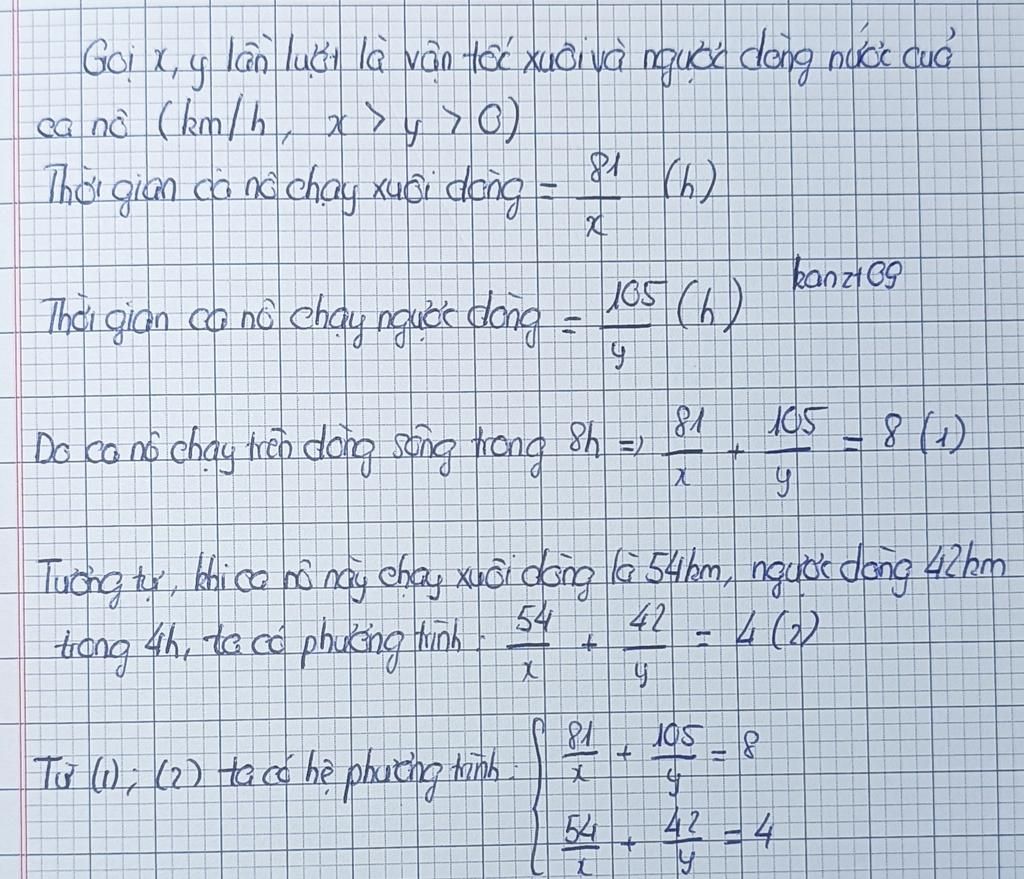 Gọi x, y lần lượt là vận tốc xuôi và ngược dòng nước của
ca nô (km/h, x > y > 0)
Thời gian ca nô chạy xuôi dòng = 81/x (h)
kanzt09
Thời gian ca nô chạy ngược dòng = 105/y (h)
Do ca nô chạy trên dòng sông trong 8h => 81/x + 105/y = 8 (1)
Tương tự, khi ca nô này chạy xuôi dòng là 54km, ngược dòng 42km
trong 4h, ta có phương trình: 54/x + 42/y = 4 (2)
Từ (1); (2) ta có hệ phương trình: { 81/x + 105/y = 8
54/x + 42/y = 4